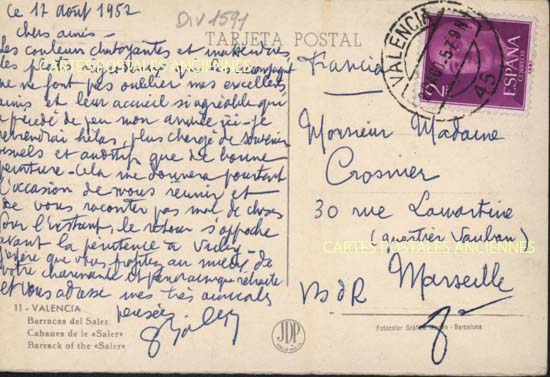 Ce 17 Août 1957
DIV 1591
TARJETA POSTAL
Chers amis -
Les couleurs chatoyantes et inattendues
ne me font pas oublier mes excellents
amis et leur accueil si agréable qui
a précédé de peu mon arrivée ici - je
reviendrai hélas, plus chargé de souvenirs
visuels et auditifs que de bonne
peinture - Cela me donnera pourtant
l'occasion de vous réunir et
de vous raconter pas mal de choses
Pour l'instant, le retour s'approche
avant la pénitence à
J'espère que vous profitez au mieux de
votre charmante et panoramique retraite
et vous adresse mes très amicales
pensées
Francia
VALENCIA
2
PTAS
CORREOS
ESPAÑA
Monsieur Madame
Crosnier
30 rue Lamartine
(quartier Vauban)
Marseille
BdR
CARTES POSTALES ANCIENNES
CARTES POSTALES ANCIENNES
11 - VALENCIA
Barracas del Saler.
Cabanes de le «Saler»
Barrack of the «Saler»
JDP
VALENCIA
Fotocolor Gráficas - Barcelona